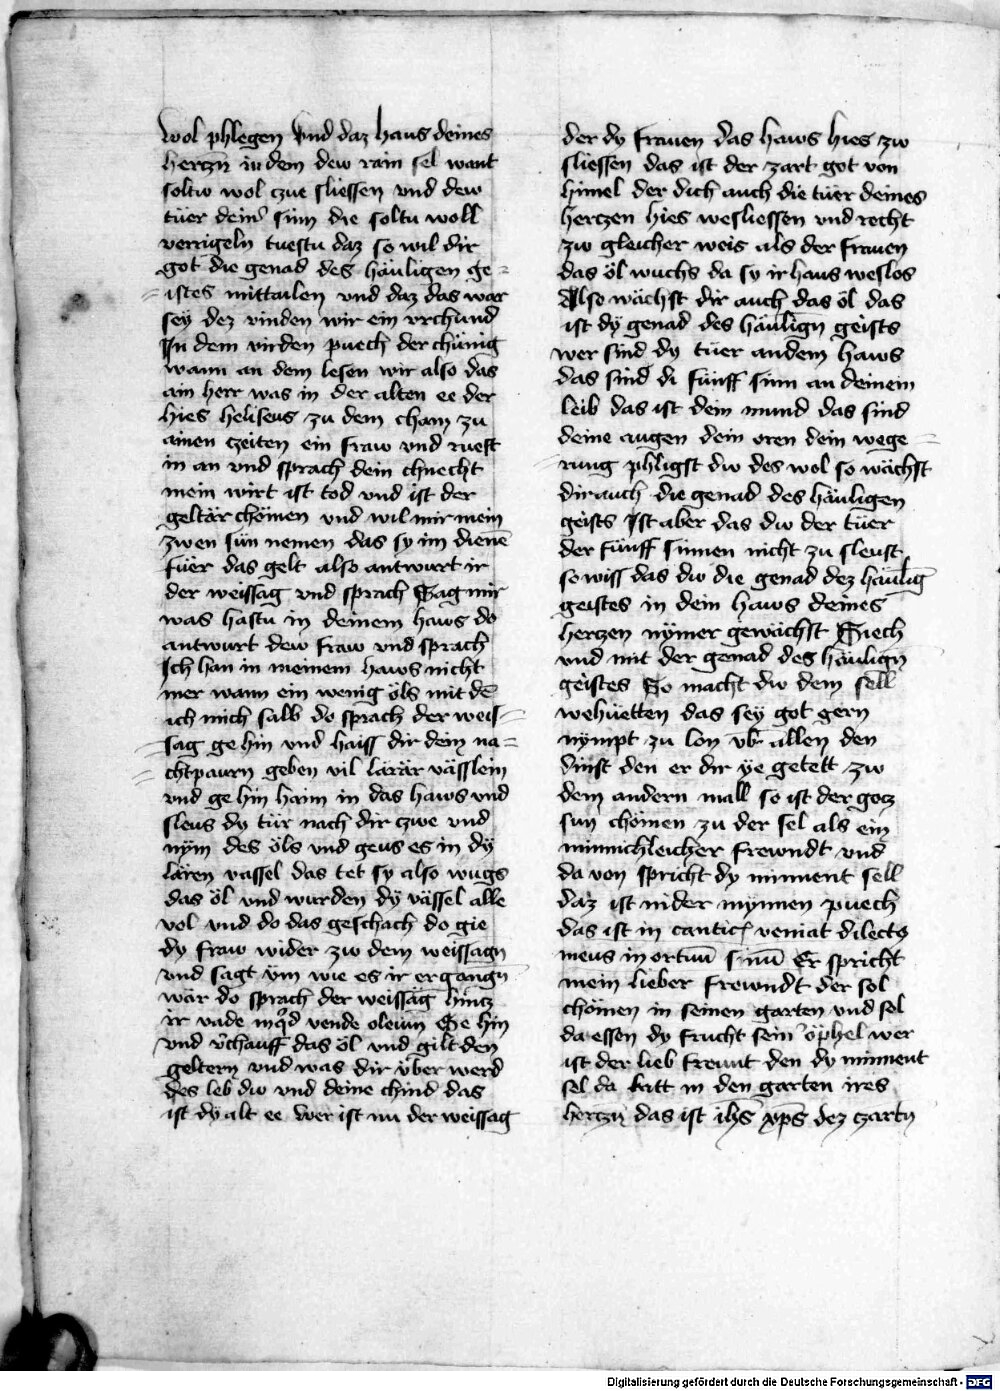 wol phlegen vnd daz haus deines
hertzn in dem dew rain sel want
soltu wol czue sliessen vnd dew
tüer dein͛ sinn die soltu woll
verrigeln tuestu daz so wil dir
got die genad des häuligen ge=
=istes mittailen vnd daz das war
sey dez vinden wir ein vrchund
In dem virden puech der chünig
wann an dem lesen wir also das
ain herr was in der alten ee der
hies heliseus zu dem cham zu
ainen czeiten ein fraw vnd rueft
in an vnd sprach dein chnecht
mein wirt ist tod vnd ist der
geltär chömen vnd wil mir mein
zwen sün nemen das sy im dienē
füer das gelt also antwurt ir
der weissag vnd sprach Sag mir
was hastu in deinem haws do
antwurt dew fraw vnd sprach
Ich han in meinem haws nicht
mer wann ein wenig öls mit dē
ich mich salb do sprach der weis=
=sag ge hin vnd haiss dir dein na=
=chtpaurn geben vil lärär vässlein
vnd ge hin haim in das haws vnd
sleus dy tür nach dir czwe vnd
nÿm des öls vnd geus es in dÿ
lären vassel das tet sy also wugs
das öl vnd wurden dÿ vässel alle
vol vnd do das geschach do gie
dy fraw wider zw dem weissagn
vnd sagt ÿm wie es ir ergangn̄
wär do sprach der weissag hintz
ir vade inqd vende oleum Ge hin
vnd v͛chauff das öl vnd gilt den
geltern vnd was dir v̈ber werd
des leb dw vnd deine chind das
ist dy alt ee wer ist nu der weissag
der dy frauen das haws hies zw
sliessen das ist der zart got von
himel der dich auch die tüer deines
hertzen hies wesliessen vnd recht
zw gleicher weis als der frauen
das öl wuchs da sy ir haus weslos
Also wächst dir auch das öl das
ist dÿ genad des häulign̄ geists
wer sind dy tüer an dem haws
das sind di fünff sinn an deinem
leib das ist dein mund das sind
deine augen dein oren dein wege=
=rung phligst dw des wol so wächst
dir auch die genad des häuligen
geists Ist aber das dw der tüer
der fünff sinnen nicht zu sleust
so wiss das dw die genad dez häulig̅
geistes in dein haws deines
hertzen nÿmer gewächst Suech
vnd mit der genad des häulign̄
geistes So macht dw dem sell
wehüetten das seÿ got gern
nÿmpt zu lon vb͛ allen den
dinst den er dir ÿe getett zw
dem andern mall so ist der gotz
sun chömen zu der sel als ein
minnichleicher frewndt vnd
da von spricht dy minnent sell
daz ist in der mynnen puech
das ist in cantic̛ veniat dilectꝯ
meus in ortum̅ sun̅ Er spricht
mein lieber frewndt der sol
chömen in seinen garten vnd sol
da essen dy frucht sein͛ öphel wer
ist der lieb freunt den dy minnent
sel da latt in den garten ires
hertzn das ist ih̅s xp̅s dez czartn